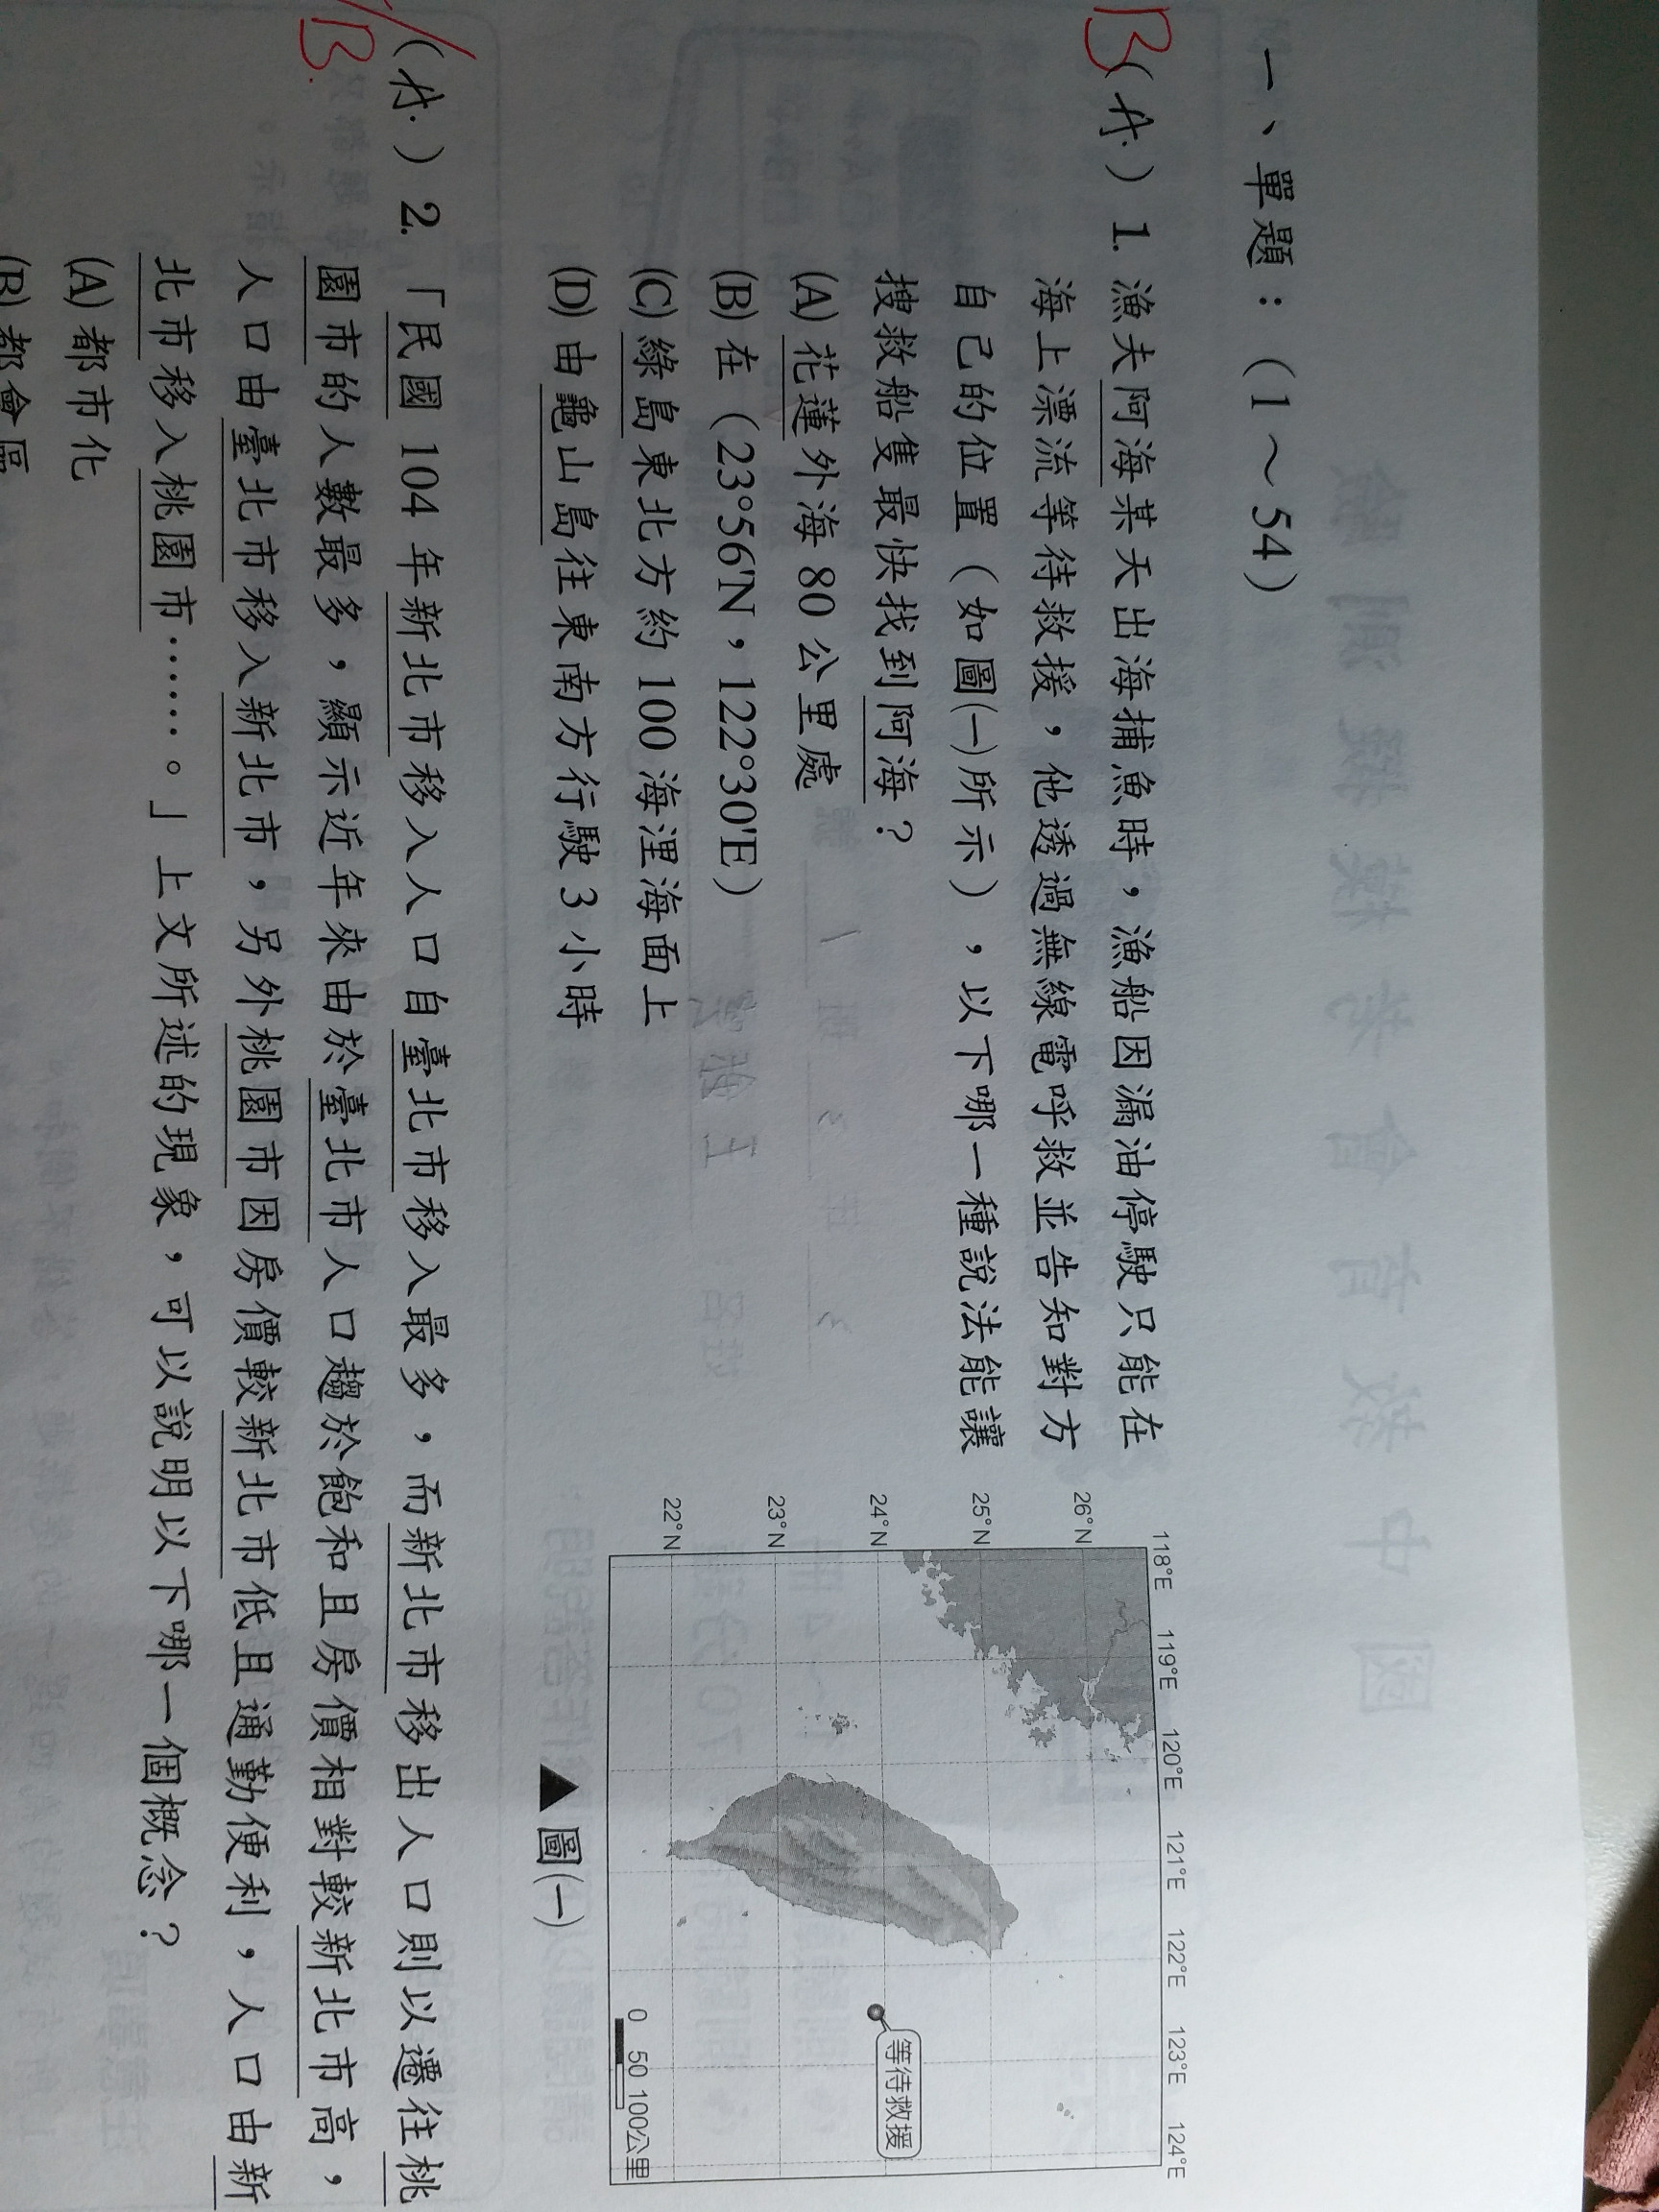 一、單題：（1～54）
B
（A.）1. 漁夫阿海某天出海捕魚時，漁船因漏油停駛只能在
海上漂流等待救援，他透過無線電呼救並告知對方
自己的位置（如圖(一)所示），以下哪一種說法能讓
搜救船隻最快找到阿海？
(A) 花蓮外海 80 公里處
(B) 在（23°56'N，122°30'E）
(C) 綠島東北方約 100 海浬海面上
(D) 由龜山島往東南方行駛 3 小時
118°E 119°E 120°E 121°E 122°E 123°E 124°E
26°N
25°N
24°N
23°N
22°N
等待救援
0 50 100公里
▲ 圖(一)
B.
（A.）2. 「民國 104 年新北市移入人口自臺北市移入最多，而新北市移出人口則以遷往桃
園市的人數最多，顯示近年來由於臺北市人口趨於飽和且房價相對較新北市高，
人口由臺北市移入新北市，另外桃園市因房價較新北市低且通勤便利，人口由新
北市移入桃園市……。」上文所述的現象，可以說明以下哪一個概念？
(A) 都市化
(B) 都會區